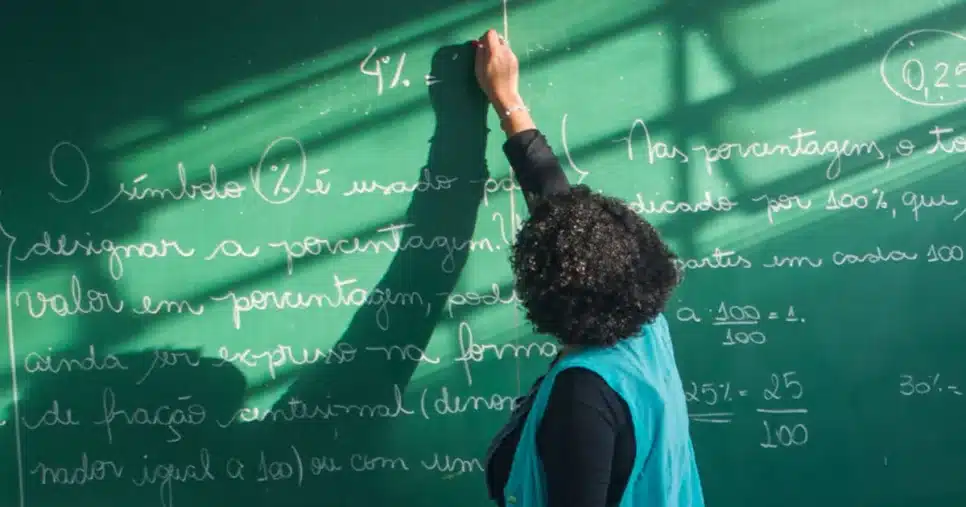 4% =
O símbolo % é usado pa
designar a porcentagem. U
valor em porcentagem, pod
ainda ser expresso na forma
de fração centesimal (denom
nador igual a 100) ou com um
0,25
Nas porcentagens, o to
dicado por 100%, que
partes em cada 100
a 100/100 = 1.
25% = 25/100
30% =